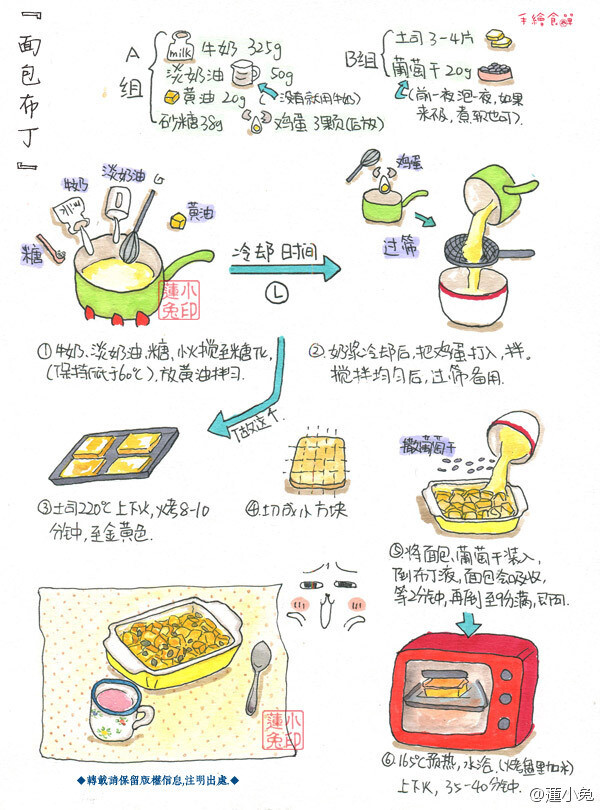 『面包布丁』
手繪食譜
A组
milk
牛奶 325g
淡奶油 50g
黄油 20g (没有就用牛奶)
砂糖38g 鸡蛋 3颗(后放)
B组
土司 3-4片
葡萄干 20g
(前一夜泡一夜,如果
来不及,煮软也可).
牛奶
淡奶油
黄油
糖
冷却 时间
鸡蛋
过筛
小蓮
印兔
①牛奶、淡奶油、糖,小火搅至糖化,
(保持低于60℃),放黄油拌匀.
②奶浆冷却后,把鸡蛋打入,拌.
搅拌均匀后,过筛备用.
做这个.
③土司220℃上下火,烤8-10
分钟,至金黄色.
④切成小方块
撒葡萄干
⑤将面包、葡萄干装入,
倒布丁液,面包会吸收,
等2分钟,再倒至9分满,即可.
⑥165℃预热,水浴.(烤盘里加水)
上下火,35-40分钟.
小蓮
印兔
◆轉載請保留版權信息,注明出處◆
@蓮小兔